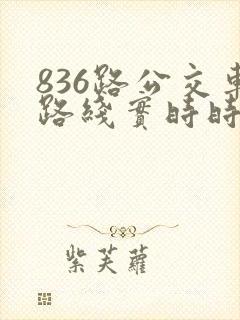 836路公交車
路綫實時時
紫芙蘿